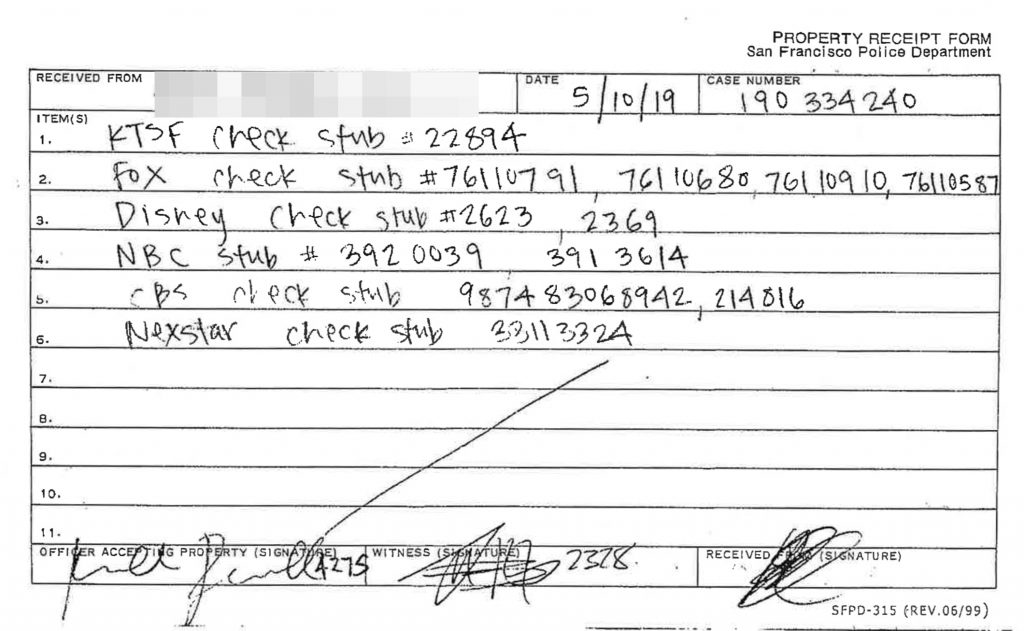 PROPERTY RECEIPT FORM
San Francisco Police Department
RECEIVED FROM DATE 5/10/19 CASE NUMBER 190 334 240
ITEM(S)
1. KTSF check stub # 22894
2. FOX check stub #76110791, 76110680, 76110910, 76110587
3. Disney check stub #2623, 2369
4. NBC stub # 392 0039 391 3614
5. CBS check stub 9874 83068942, 214816
6. Nexstar check stub 33113324
7.
8.
9.
10.
11.
OFFICER ACCEPTING PROPERTY (SIGNATURE) 4275 WITNESS (SIGNATURE) 2328 RECEIVED (SIGNATURE)
SFPD-315 (REV.06/99)